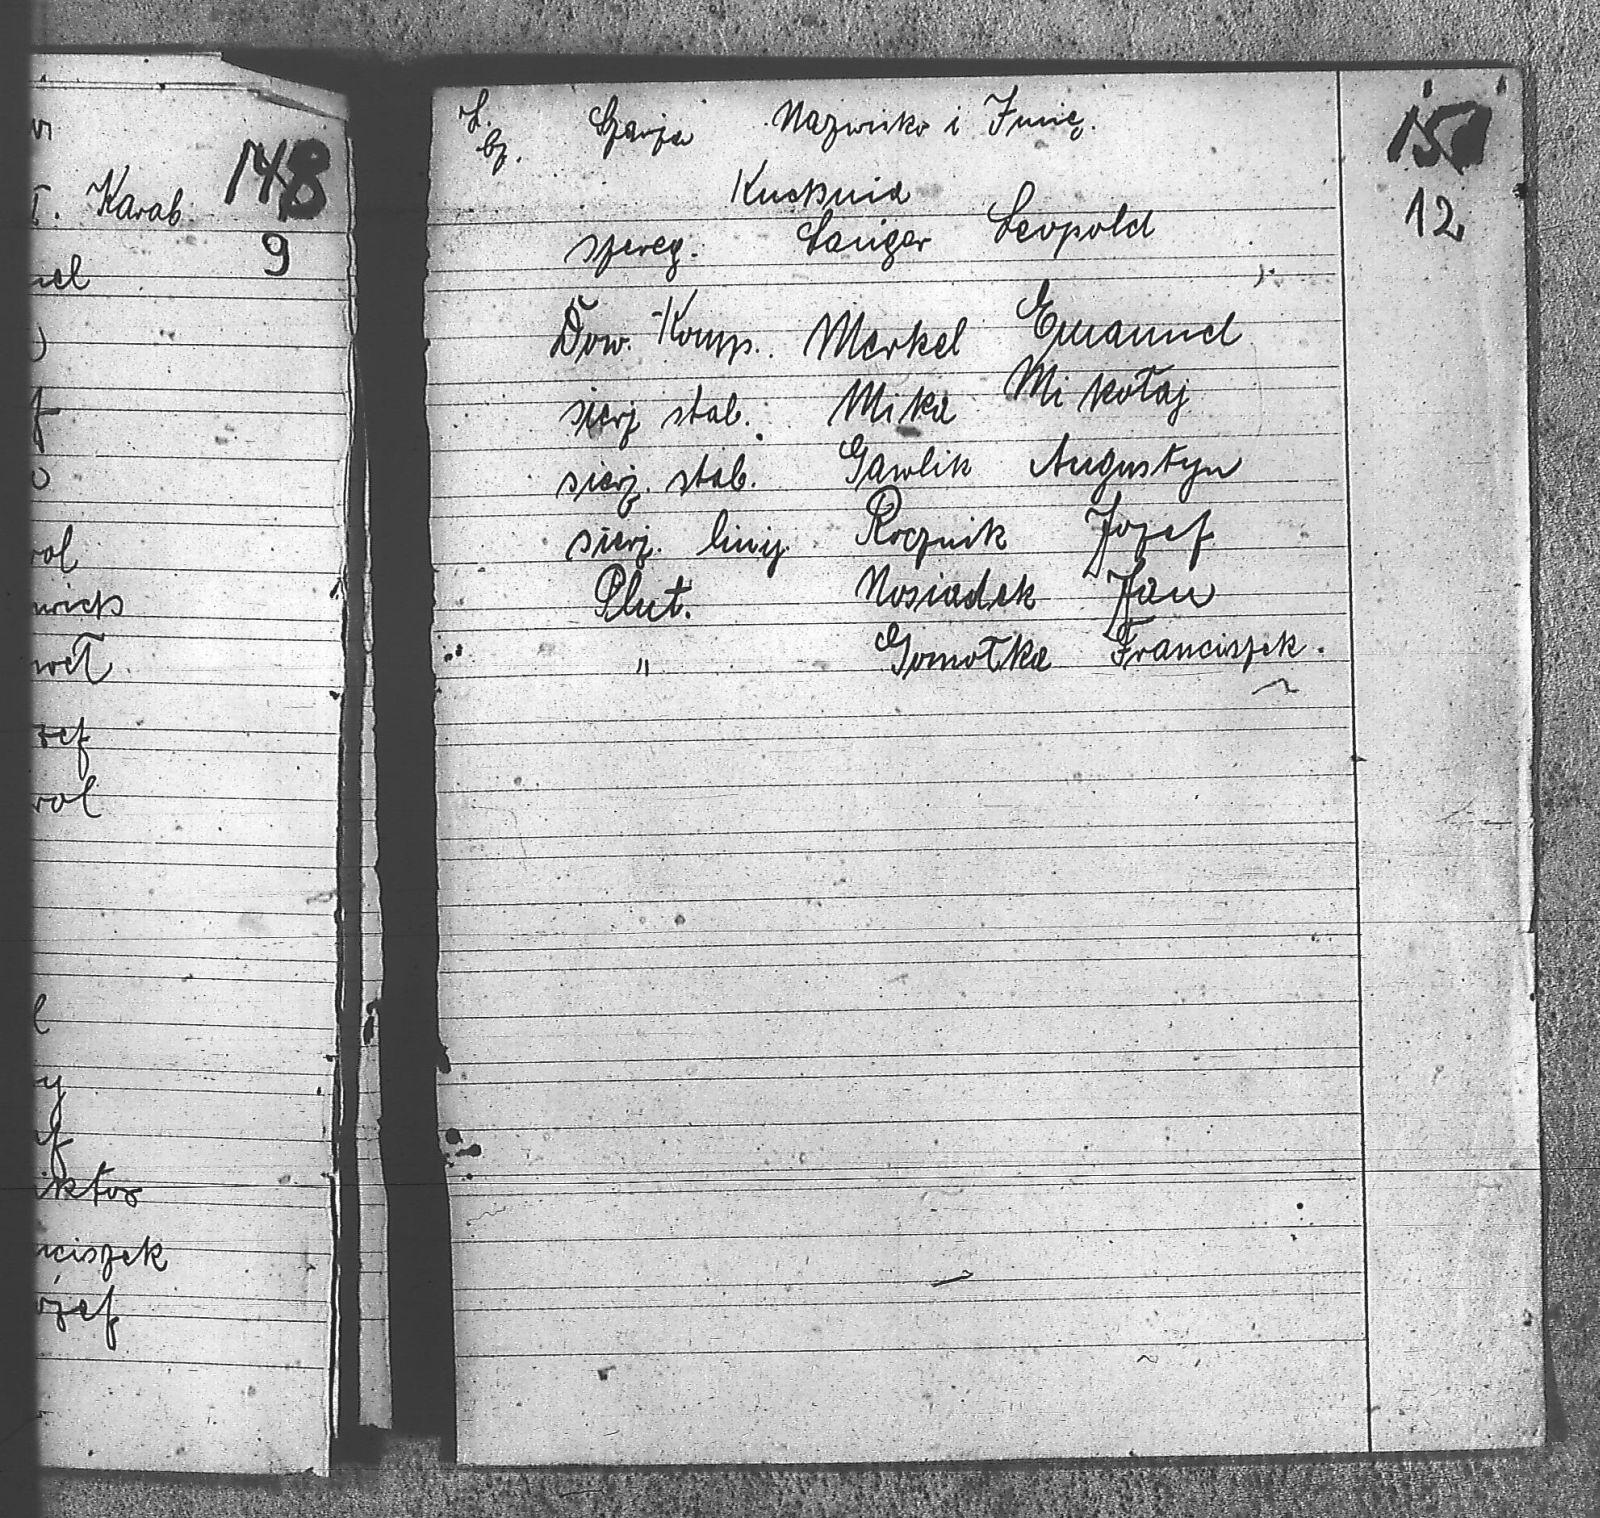 148
T. Karab.
9
uel
rol
zef
rol
iktor
nciszek
ózef
L. bz. Szarja Nazwisko i Imię.
151
12
Kuchnia
szereg. Langer Leopold
Dow. Komp. Merkel Emanuel
sierż stab. Mika Mikołaj
sierż. stab. Gawlik Augustyn
sierż. linij Rocznik Józef
Plut. Nosiadek Jan
" Gomołka Franciszek.